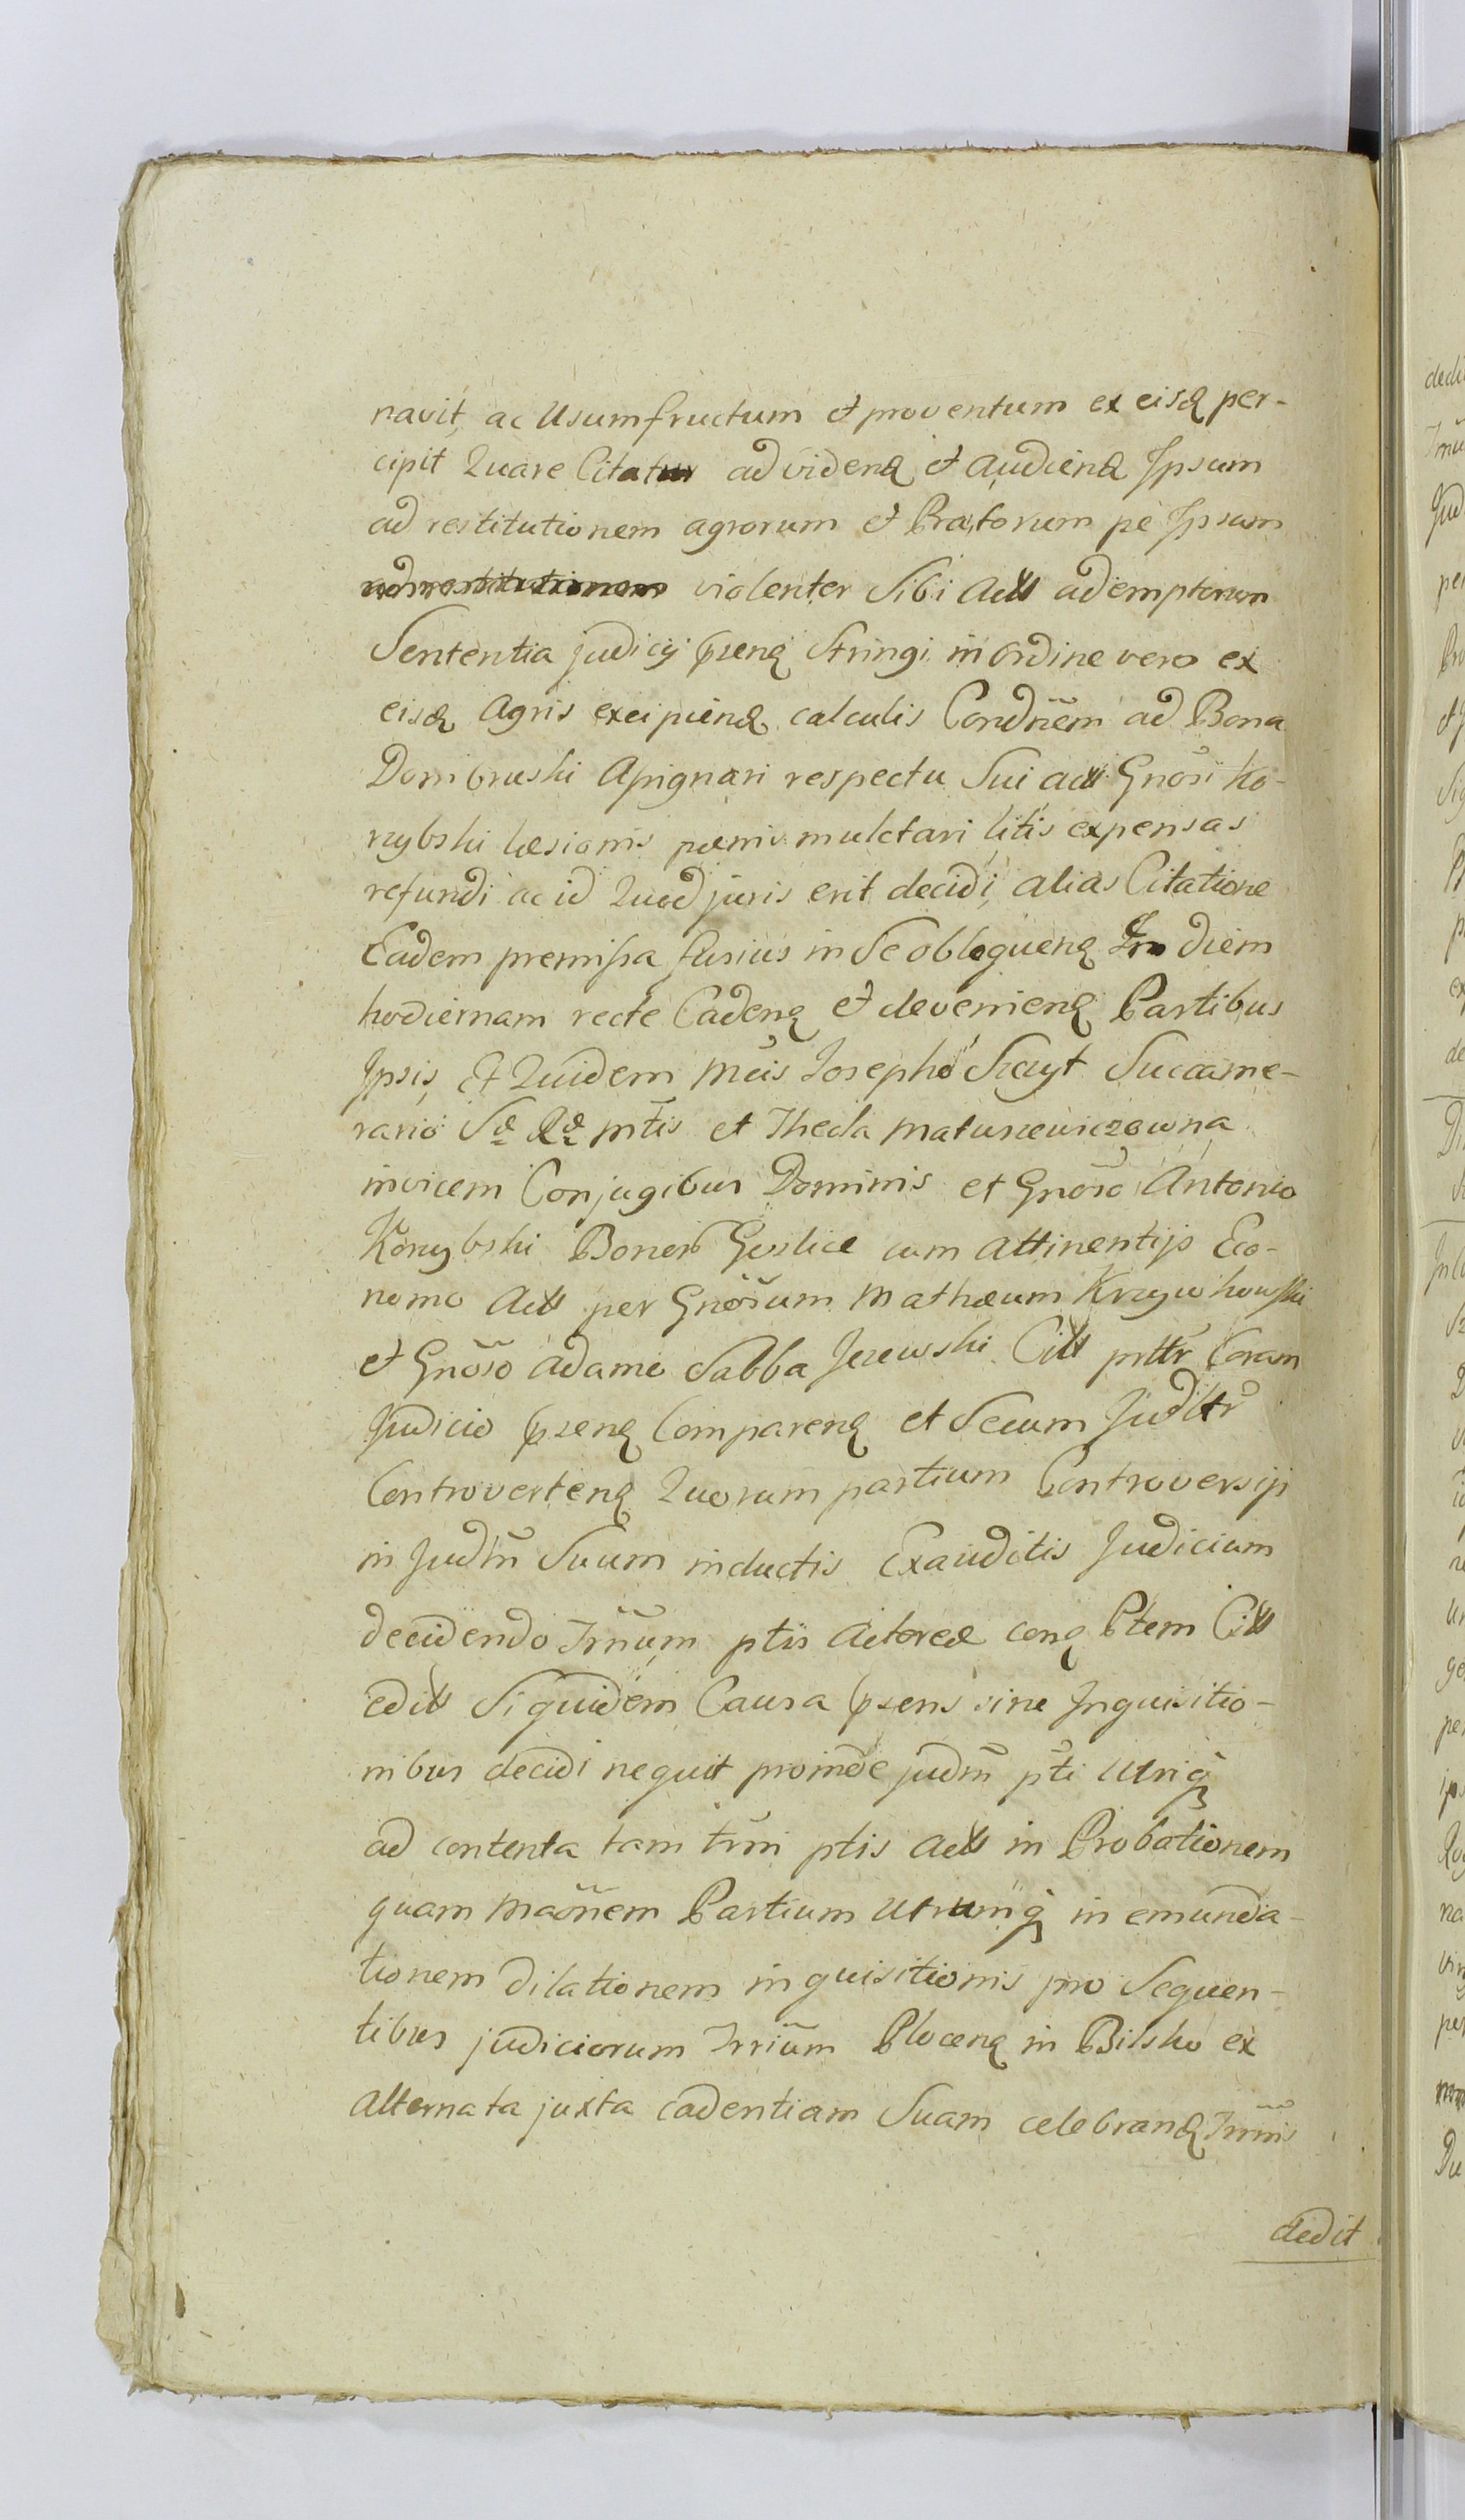 navit, ac Usumfructum et proventum ex eisq per-
cipit Quare Citatur ad videnq et Audienq Ipsum
ad restitutionem agrorum et Pratorum pe Ipsum
violenter Sibi Actt ademptorum
Sententia judicij pzenq Stringi in ordine vero ex
eisq Agris excipienq calculis Condnem ad Bona
Dombruski Assignari respectu Sui actt Gnosi Ko-
rzybski læsionis pænis mulctari litis expensas
refundi ac id Quod juris erit decidi, alias Citatione
Eadem premissa fusius in Se obloquenq In diem
hodiernam recte Cadenq et devenienq Partibus
Ipsis, Et Quidem Mcis Josepho Szczyt Succame-
rario Sæ Ræ mtis et Thecla Matuszewiczowna
invicem Conjugibus Dominis et Gnoso Antonio
Korzybski Bonor Geslice cum attinentijs Eco-
nomo Actt per Gnosum Mathæum Krzywkowski
et Gnoso Adamo Sabba Jezewski Citt prttr Coram
Judicio pzenq Comparenq et Secum Judltr
Controvertenq Quorum partium Controversijs
in Judm Suum inductis Exauditis Judicium
decidendo Trnum ptis Actoreæ conq Ptem Citt
editt Siquidem Causa pzens sine Inquisitio-
nibus decidi nequit proinde judm pti Utriq
ad contenta tam trni ptis Actt in Probationem
quam Maonem Partium Utrumq in emunda-
tionem dilationem inquisitionis pro Sequen-
tibus judiciorum Trrium Plocenq in Bilsko ex
Alternata juxta cadentiam Suam celebranq Trmis
dedit